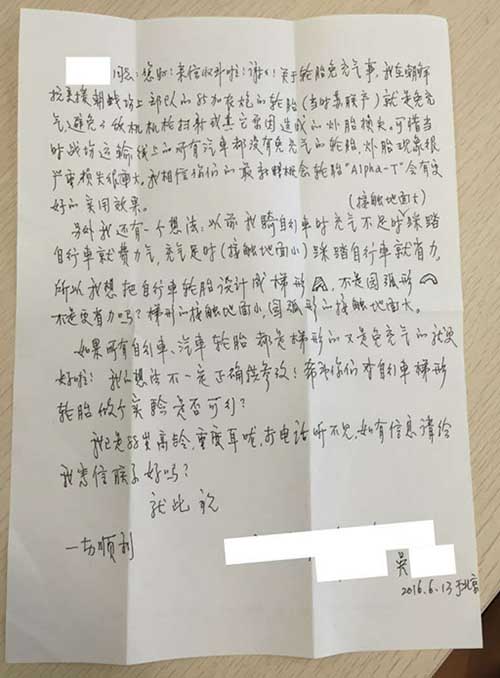 同志:您好!来信收到啦!谢谢!关于轮胎免充气事,我在朝鲜
抗美援朝战场上部队的85加农炮的轮胎(当时苏联产)就是免充
气,避免了敌机机枪扫射或其它原因造成的炸胎损失。可惜当
时战场运输线上的所有汽车都没有免充气的轮胎,炸胎现象很
严重损失很重大。我相信你们的最新蜂概念轮胎"Alpha-T"会有更
好的实用效果。
(接触地面大)
另外我还有一个想法:以前我骑自行车时充气不足时踩踏
自行车就费力气,充气足时(接触地面小)踩踏自行车就省力,
所以我想把自行车轮胎设计成梯形,不是圆弧形
不是更省力吗?梯形的接触地面小,圆弧形的接触地面大。
如果所有自行车、汽车轮胎都是梯形的又是免充气的就更
好啦!我的想法不一定正确供参考!希望你们在自行车梯形
轮胎做个实验是否可行?
我已是85岁高龄,重度耳聋,打电话听不见,如有信息请给
我写信联系好吗?
就此祝
一切顺利
吴
2016.6.13于北京